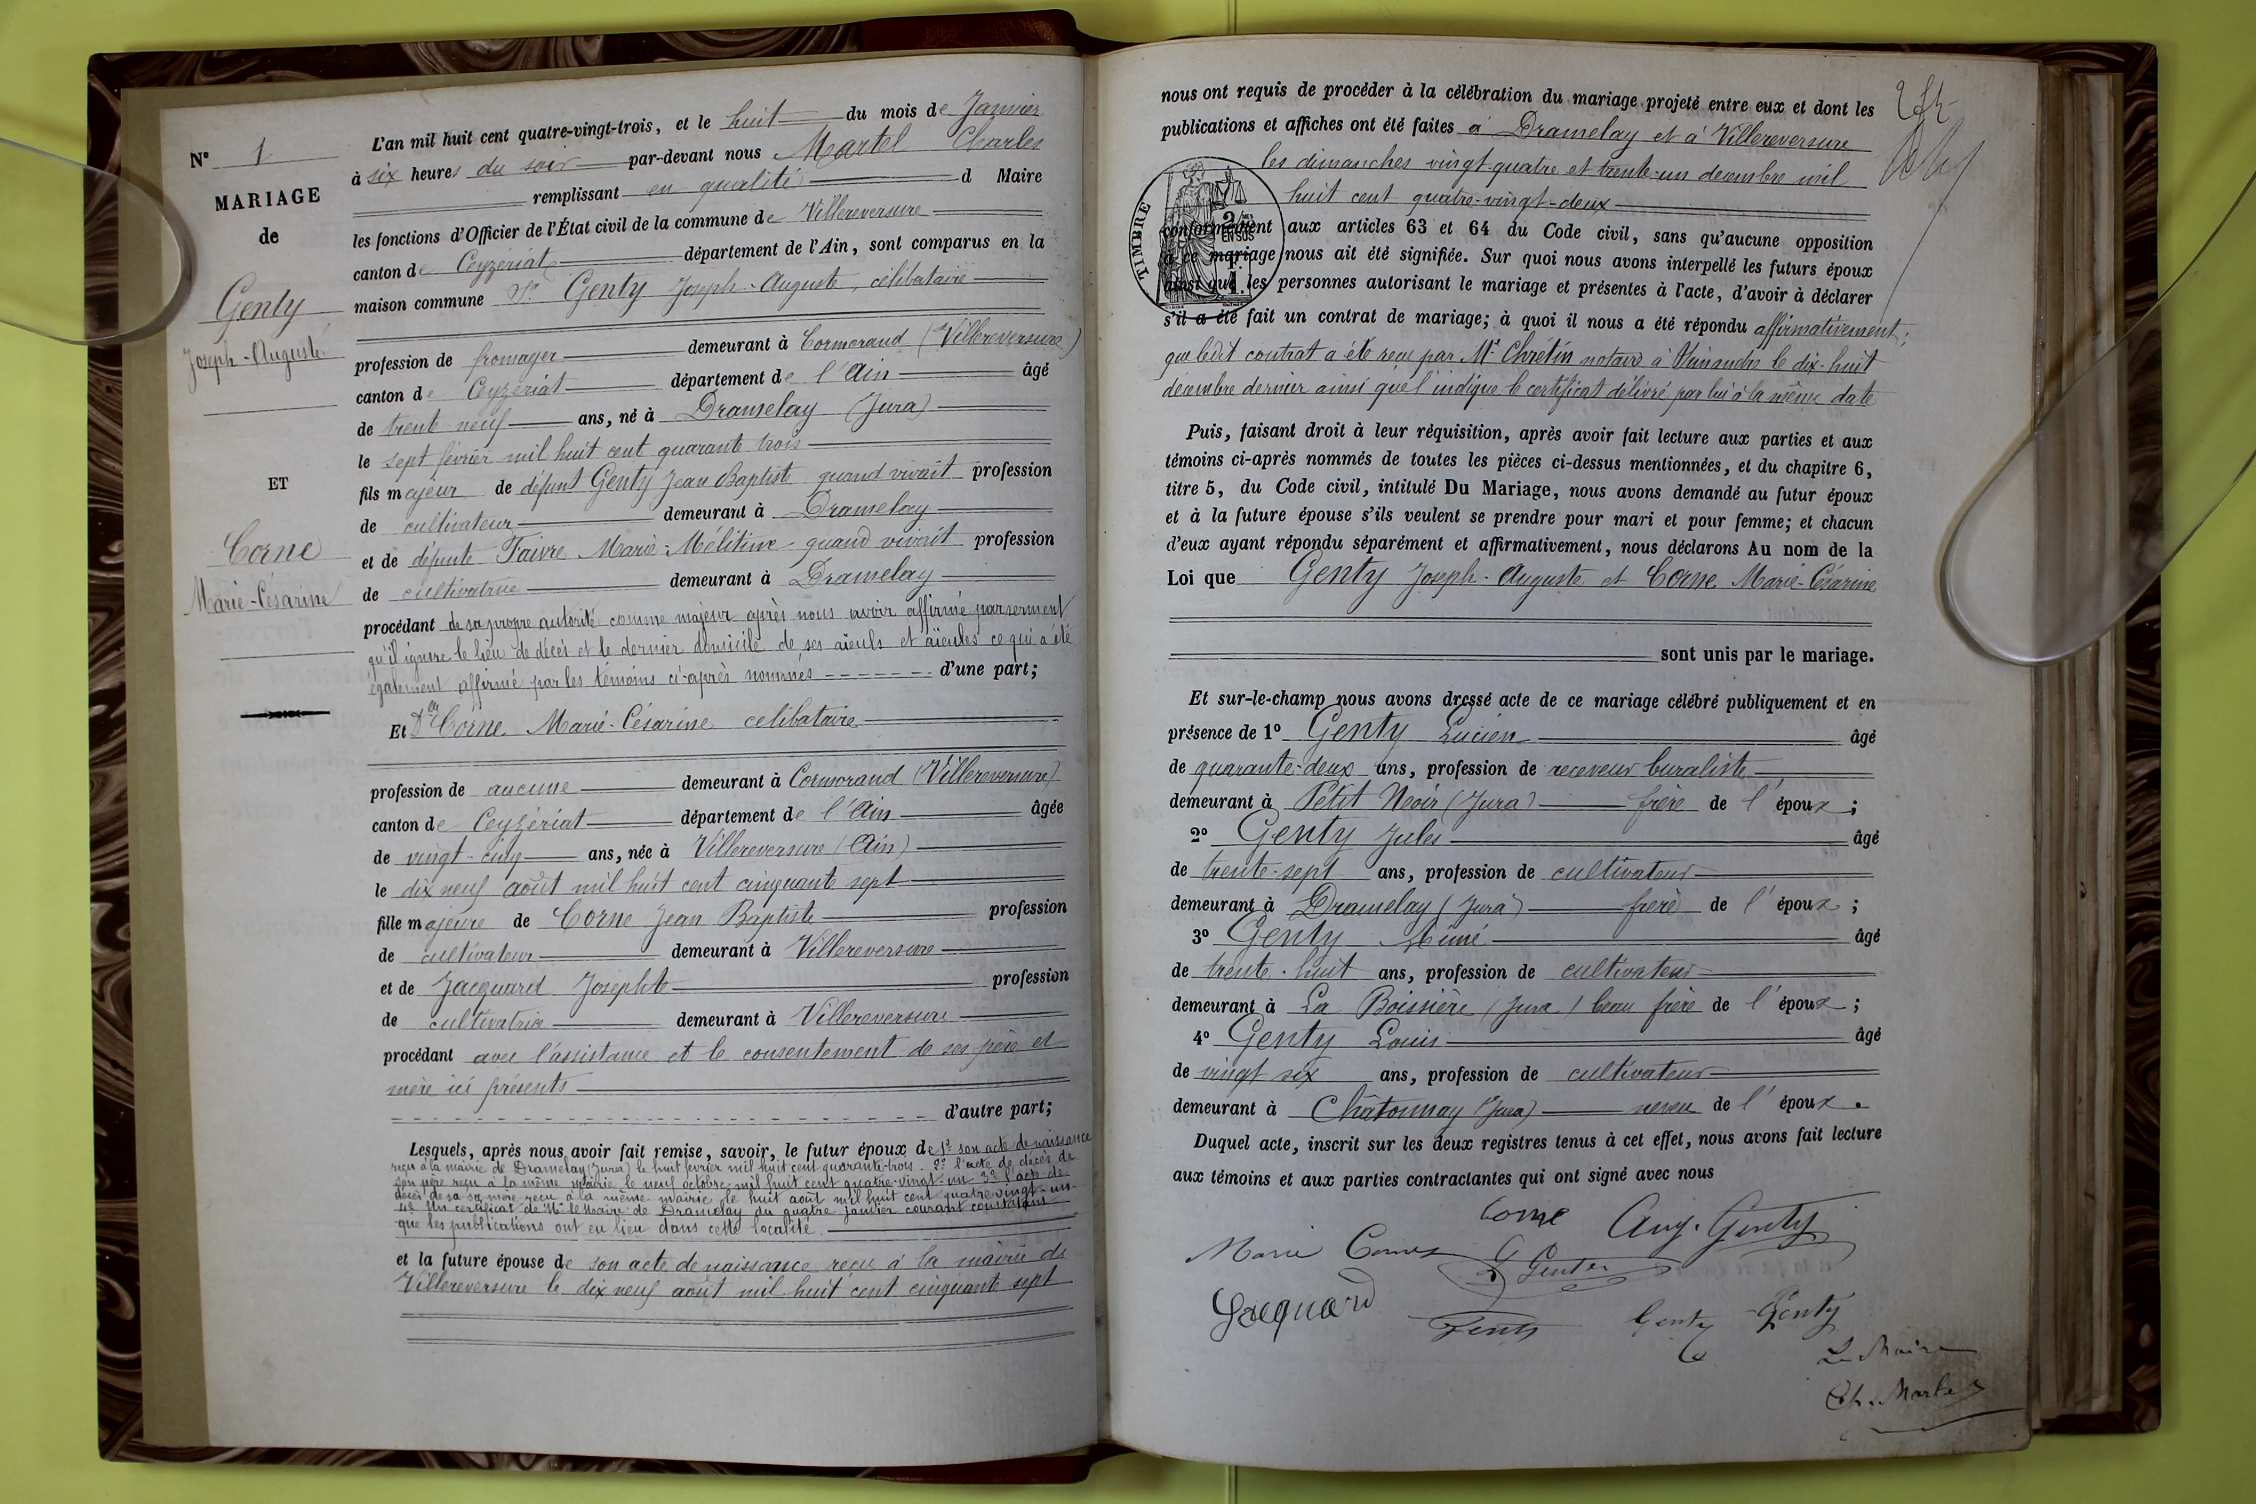 N° 1
MARIAGE
de
Genty
Joseph-Auguste
ET
Corne
Marie-Césarine
L'an mil huit cent quatre-vingt-trois, et le huit du mois de Janvier
à six heures du soir par-devant nous Martel Charles
remplissant en qualité d Maire
les fonctions d'Officier de l'État civil de la commune de Villereversure
canton de Ceyzériat département de l'Ain, sont comparus en la
maison commune Sr Genty Joseph-Auguste, célibataire
profession de fromager demeurant à Cormorand (Villereversure)
canton de Ceyzériat département de l'Ain âgé
de trente neuf ans, né à Dramelay (Jura)
le sept février mil huit cent quarante trois
fils majeur de défunt Genty Jean Baptiste quand vivait profession
de cultivateur demeurant à Dramelay
et de défunte Faivre Marie-Mélitine quand vivait profession
de cultivatrice demeurant à Dramelay
procédant de sa propre autorité comme majeur après nous avoir affirmé par serment
qu'il ignore le lieu de décès et le dernier domicile de ses aïeuls et aïeules ce qui a été
également affirmé par les témoins ci-après nommés d'une part;
Et Dlle Corne Marie-Césarine célibataire
profession de aucune demeurant à Cormorand (Villereversure)
canton de Ceyzériat département de l'Ain âgée
de vingt-cinq ans, née à Villereversure (Ain)
le dix neuf août mil huit cent cinquante sept
fille majeure de Corne Jean Baptiste profession
de cultivateur demeurant à Villereversure
et de Jacquard Josephte profession
de cultivatrice demeurant à Villereversure
procédant avec l'assistance et le consentement de ses père et
mère ici présents
d'autre part;
Lesquels, après nous avoir fait remise, savoir, le futur époux de 1° son acte de naissance
reçu à la mairie de Dramelay (Jura) le huit février mil huit cent quarante-trois. 2° l'acte de décès de
son père reçu à la même mairie le neuf octobre mil huit cent quatre-vingt-un 3° l'acte de
décès de sa sa mère reçu à la même mairie le huit août mil huit cent quatre vingt-un-
4° Un certificat de Mr le Maire de Dramelay du quatre janvier courant constatant
que les publications ont eu lieu dans cette localité.
et la future épouse de son acte de naissance reçu à la mairie de
Villereversure le dix neuf août mil huit cent cinquante sept
nous ont requis de procéder à la célébration du mariage projeté entre eux et dont les
publications et affiches ont été faites à Dramelay et à Villereversure
les dimanches vingt-quatre et trente-un décembre mil
huit cent quatre-vingt-deux
TIMBRE
2/10es
EN SUS
conformément aux articles 63 et 64 du Code civil, sans qu'aucune opposition
à ce mariage nous ait été signifiée. Sur quoi nous avons interpellé les futurs époux
ainsi que les personnes autorisant le mariage et présentes à l'acte, d'avoir à déclarer
s'il a été fait un contrat de mariage; à quoi il nous a été répondu affirmativement;
que ledit contrat a été reçu par Me Chrétin notaire à le dix-huit
décembre dernier ainsi que l'indique le certificat délivré par lui à la même date
Puis, faisant droit à leur réquisition, après avoir fait lecture aux parties et aux
témoins ci-après nommés de toutes les pièces ci-dessus mentionnées, et du chapitre 6,
titre 5, du Code civil, intitulé Du Mariage, nous avons demandé au futur époux
et à la future épouse s'ils veulent se prendre pour mari et pour femme; et chacun
d'eux ayant répondu séparément et affirmativement, nous déclarons Au nom de la
Loi que Genty Joseph-Auguste et Corne Marie-Césarine
sont unis par le mariage.
Et sur-le-champ nous avons dressé acte de ce mariage célébré publiquement et en
présence de 1° Genty Lucien âgé
de quarante-deux ans, profession de receveur buraliste
demeurant à Petit Noir (Jura) frère de l'époux;
2° Genty Jules âgé
de trente-sept ans, profession de cultivateur
demeurant à Dramelay (Jura) frère de l'époux;
3° Genty Aimé âgé
de trente-huit ans, profession de cultivateur
demeurant à La Boissière (Jura) beau frère de l'époux;
4° Genty Louis âgé
de vingt six ans, profession de cultivateur
demeurant à Châtonnay (Jura) neveu de l'époux.
Duquel acte, inscrit sur les deux registres tenus à cet effet, nous avons fait lecture
aux témoins et aux parties contractantes qui ont signé avec nous
Corne Aug. Genty
Marie Corne L Genty
Jacquard Genty Genty Genty
Le Maire
Ch. Martel